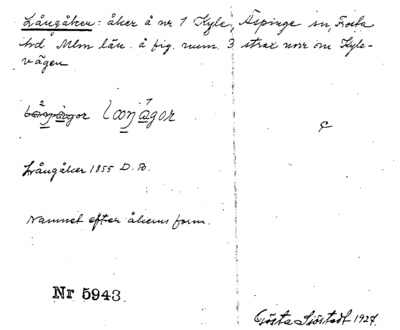 Långåker: åker å nr 1 Kyle, Äspinge sn, Frosta
hd Mlm län. å fig. num. 3 strax norr om Kyle-
vägen
Långåker 1855 D. B.
Namnet efter åkerns form.
Nr 5943.
Gösta Sjöstedt 1927